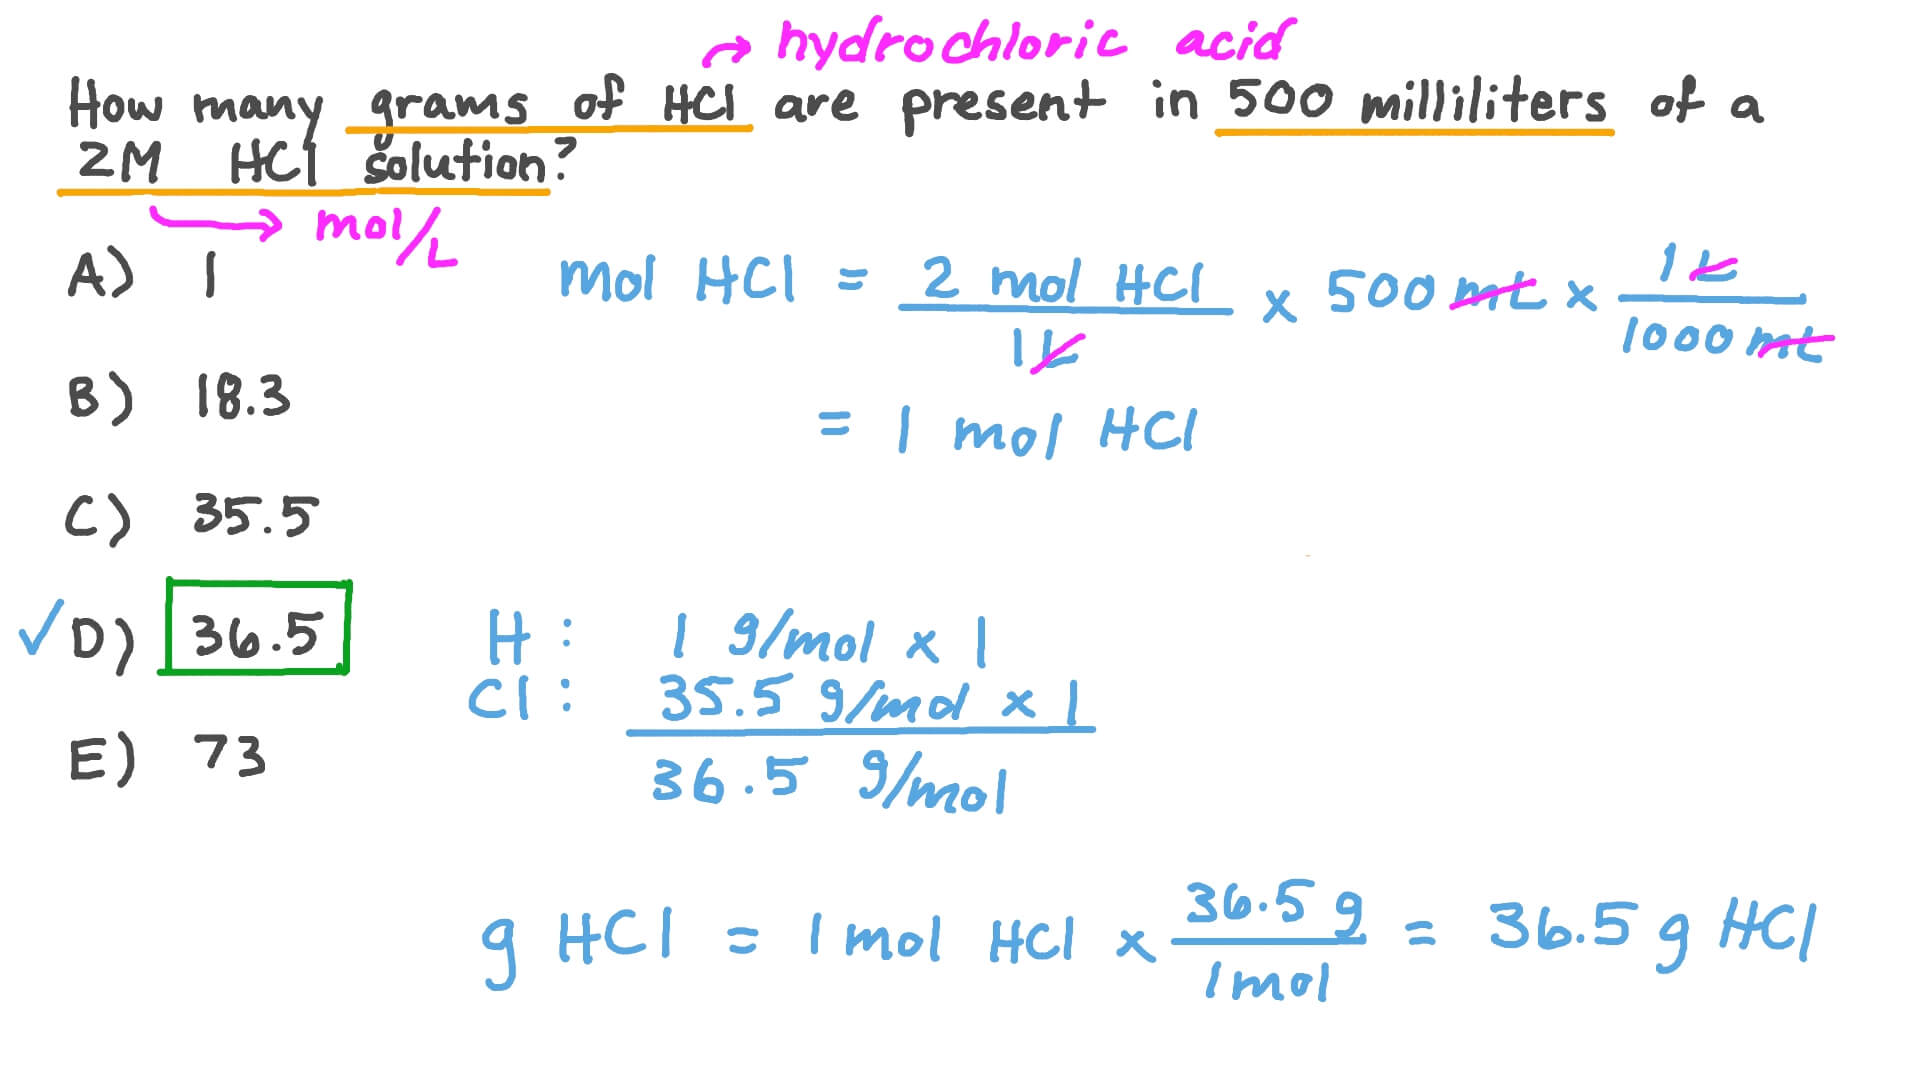 hydrochloric acid
How many grams of HCl are present in 500 milliliters of a
2M HCl solution?
mol/L
A) 1
mol HCl = 2 mol HCl / 1L x 500 mL x 1L / 1000 mL
B) 18.3
= 1 mol HCl
C) 35.5
✓ D) 36.5
H : 1 g/mol x 1
Cl : 35.5 g/mol x 1
E) 73
36.5 g/mol
g HCl = 1 mol HCl x 36.5 g / 1 mol = 36.5 g HCl